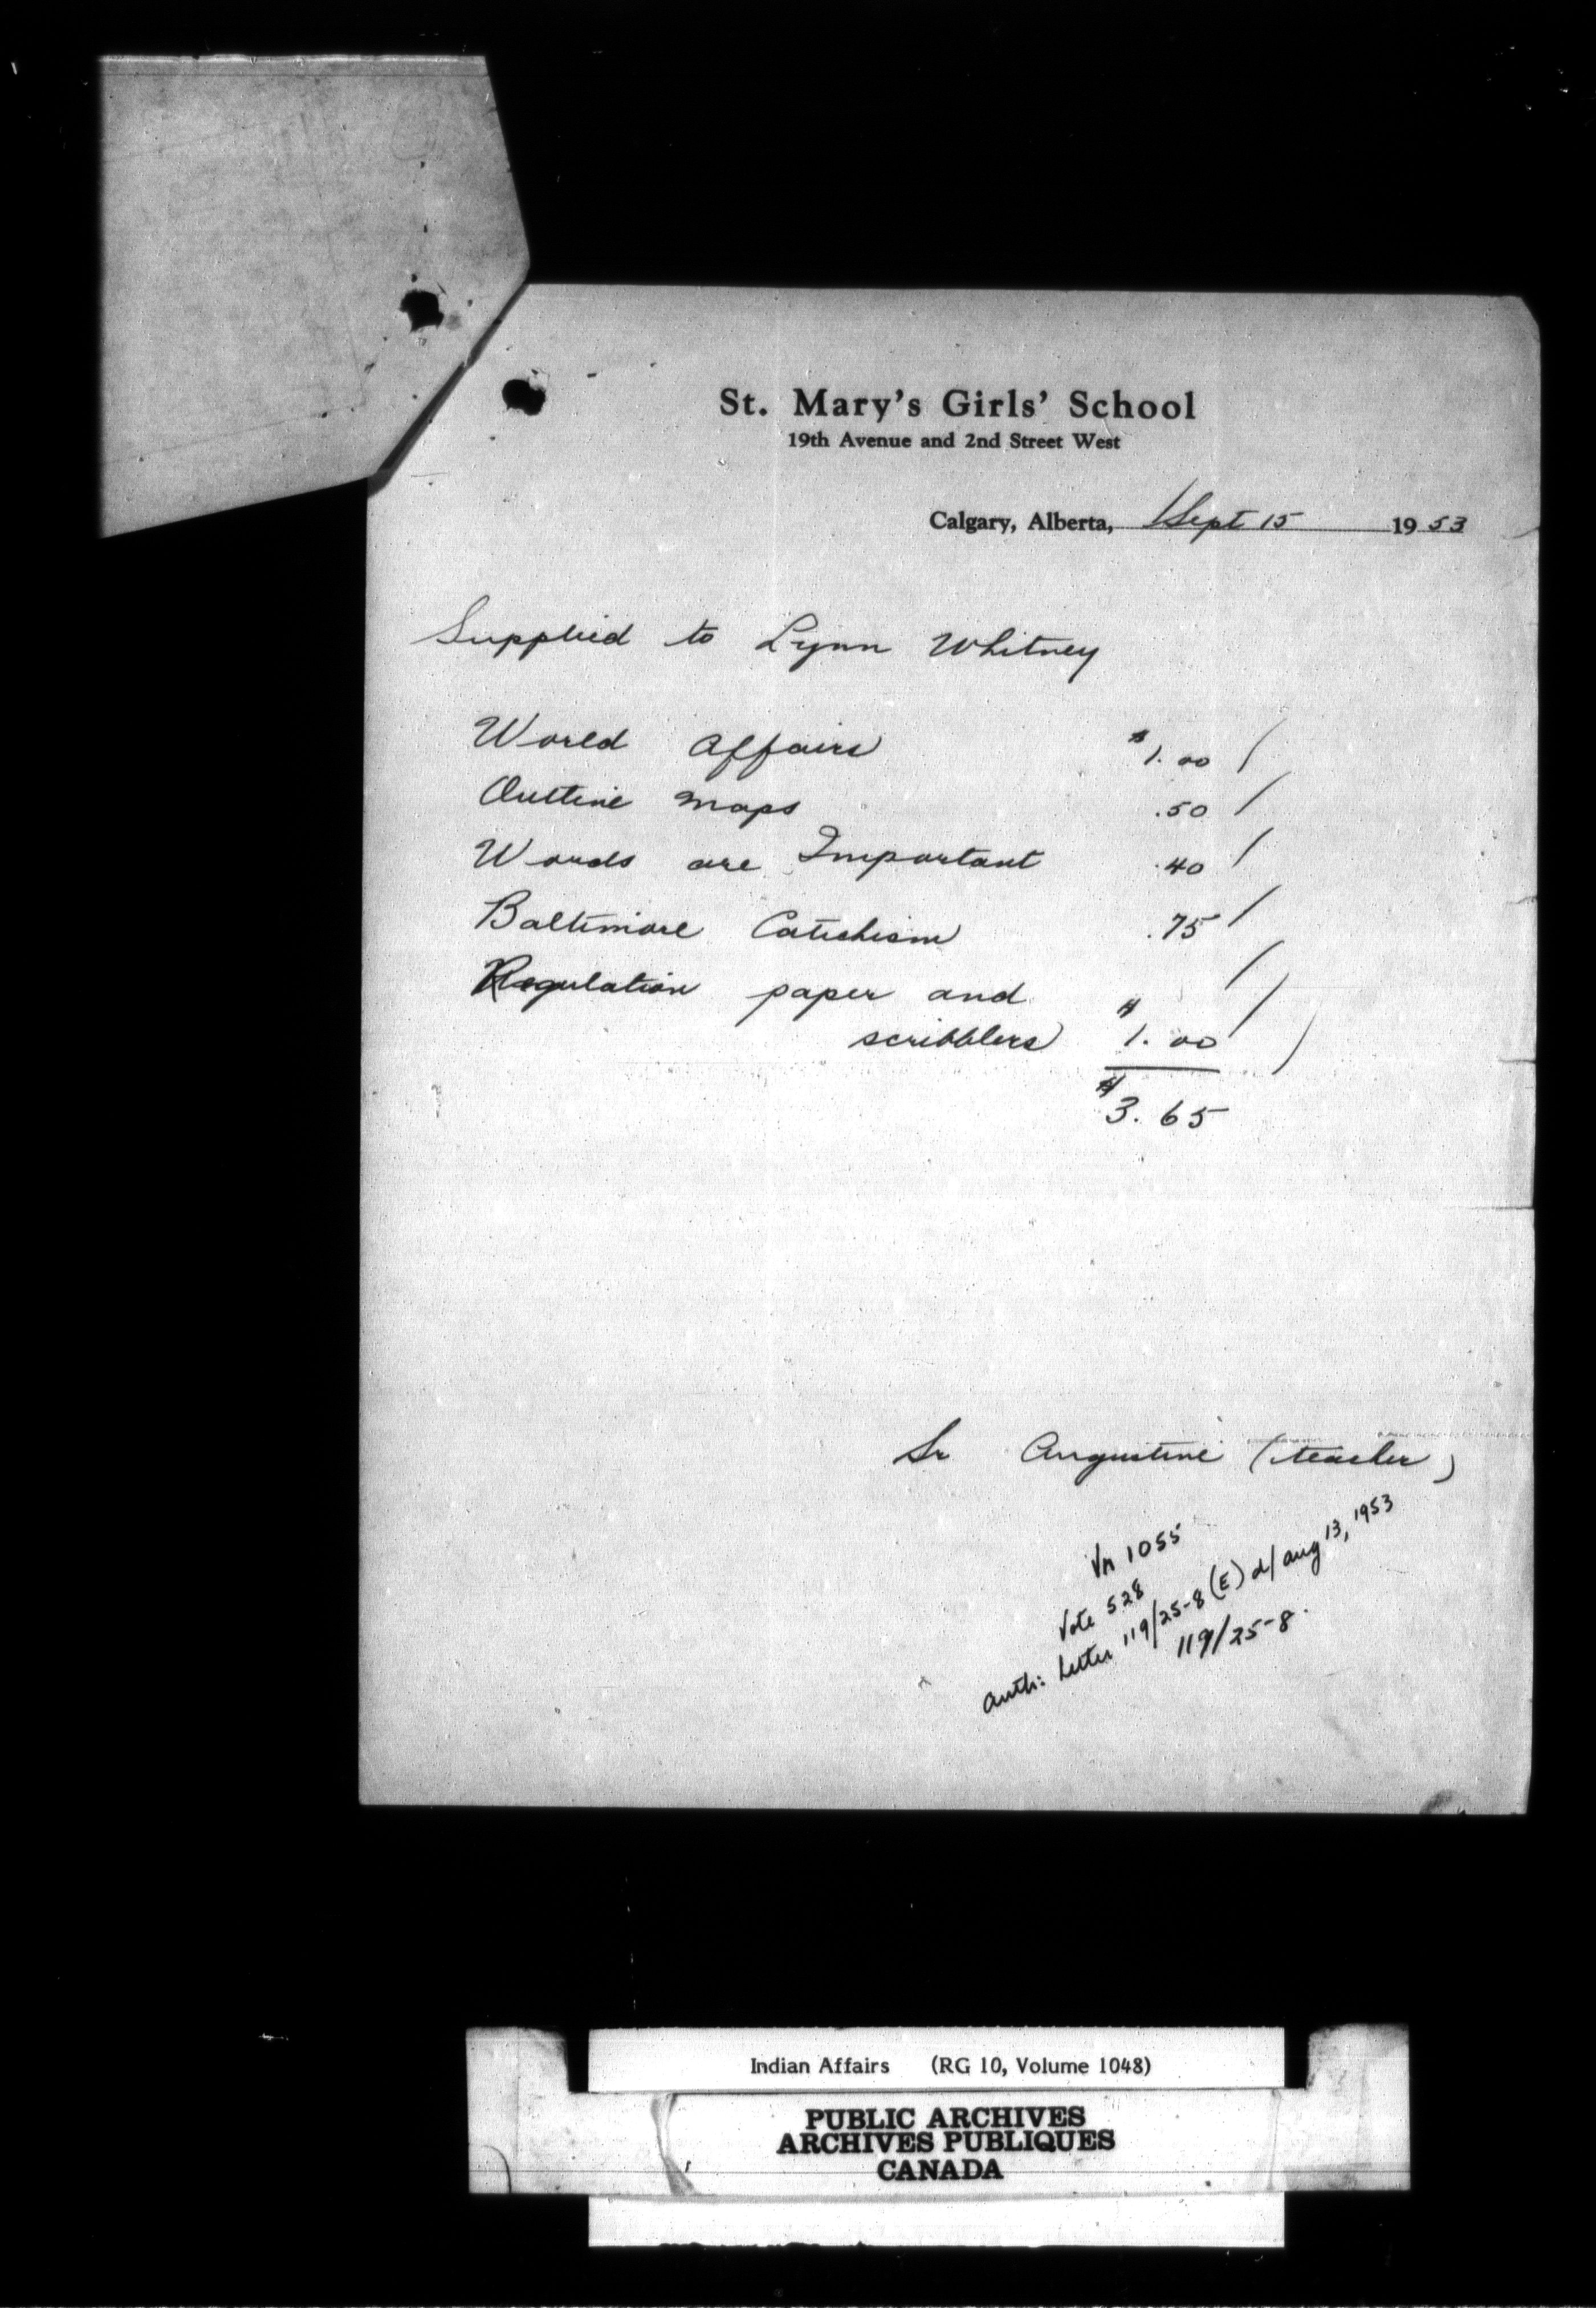 St. Mary's Girls' School
19th Avenue and 2nd Street West
Calgary, Alberta, Sept 15 1953
Supplied to Lynn Whitney
World Affairs $1.00
Outline Maps .50
Words are Important .40
Baltimore Catechism .75
Regulation paper and
scribblers $1.00
$3.65
Sr Augustine (teacher)
Vn 1055
Vote 528
Auth: Letter 119/25-8 (E) d/ Aug 13, 1953
119/25-8.
Indian Affairs (RG 10, Volume 1048)
PUBLIC ARCHIVES
ARCHIVES PUBLIQUES
CANADA